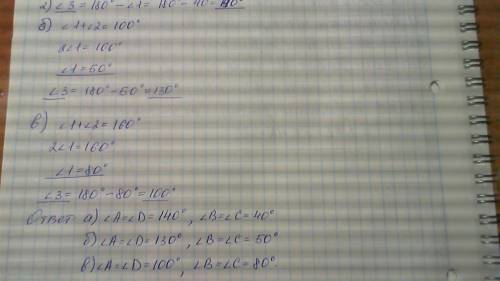 2) ∠3 = 180° - ∠1 = 180° - 40° = 140°
б) ∠1+∠2 = 100°
2∠1 = 100°
∠1 = 50°
∠3 = 180° - 50° = 130°
в) ∠1+∠2 = 160°
2∠1 = 160°
∠1 = 80°
∠3 = 180° - 80° = 100°
Ответ: а) ∠A=∠D = 140°, ∠B=∠C = 40°
б) ∠A=∠D = 130°, ∠B=∠C = 50°
в) ∠A=∠D = 100°, ∠B=∠C = 80°.